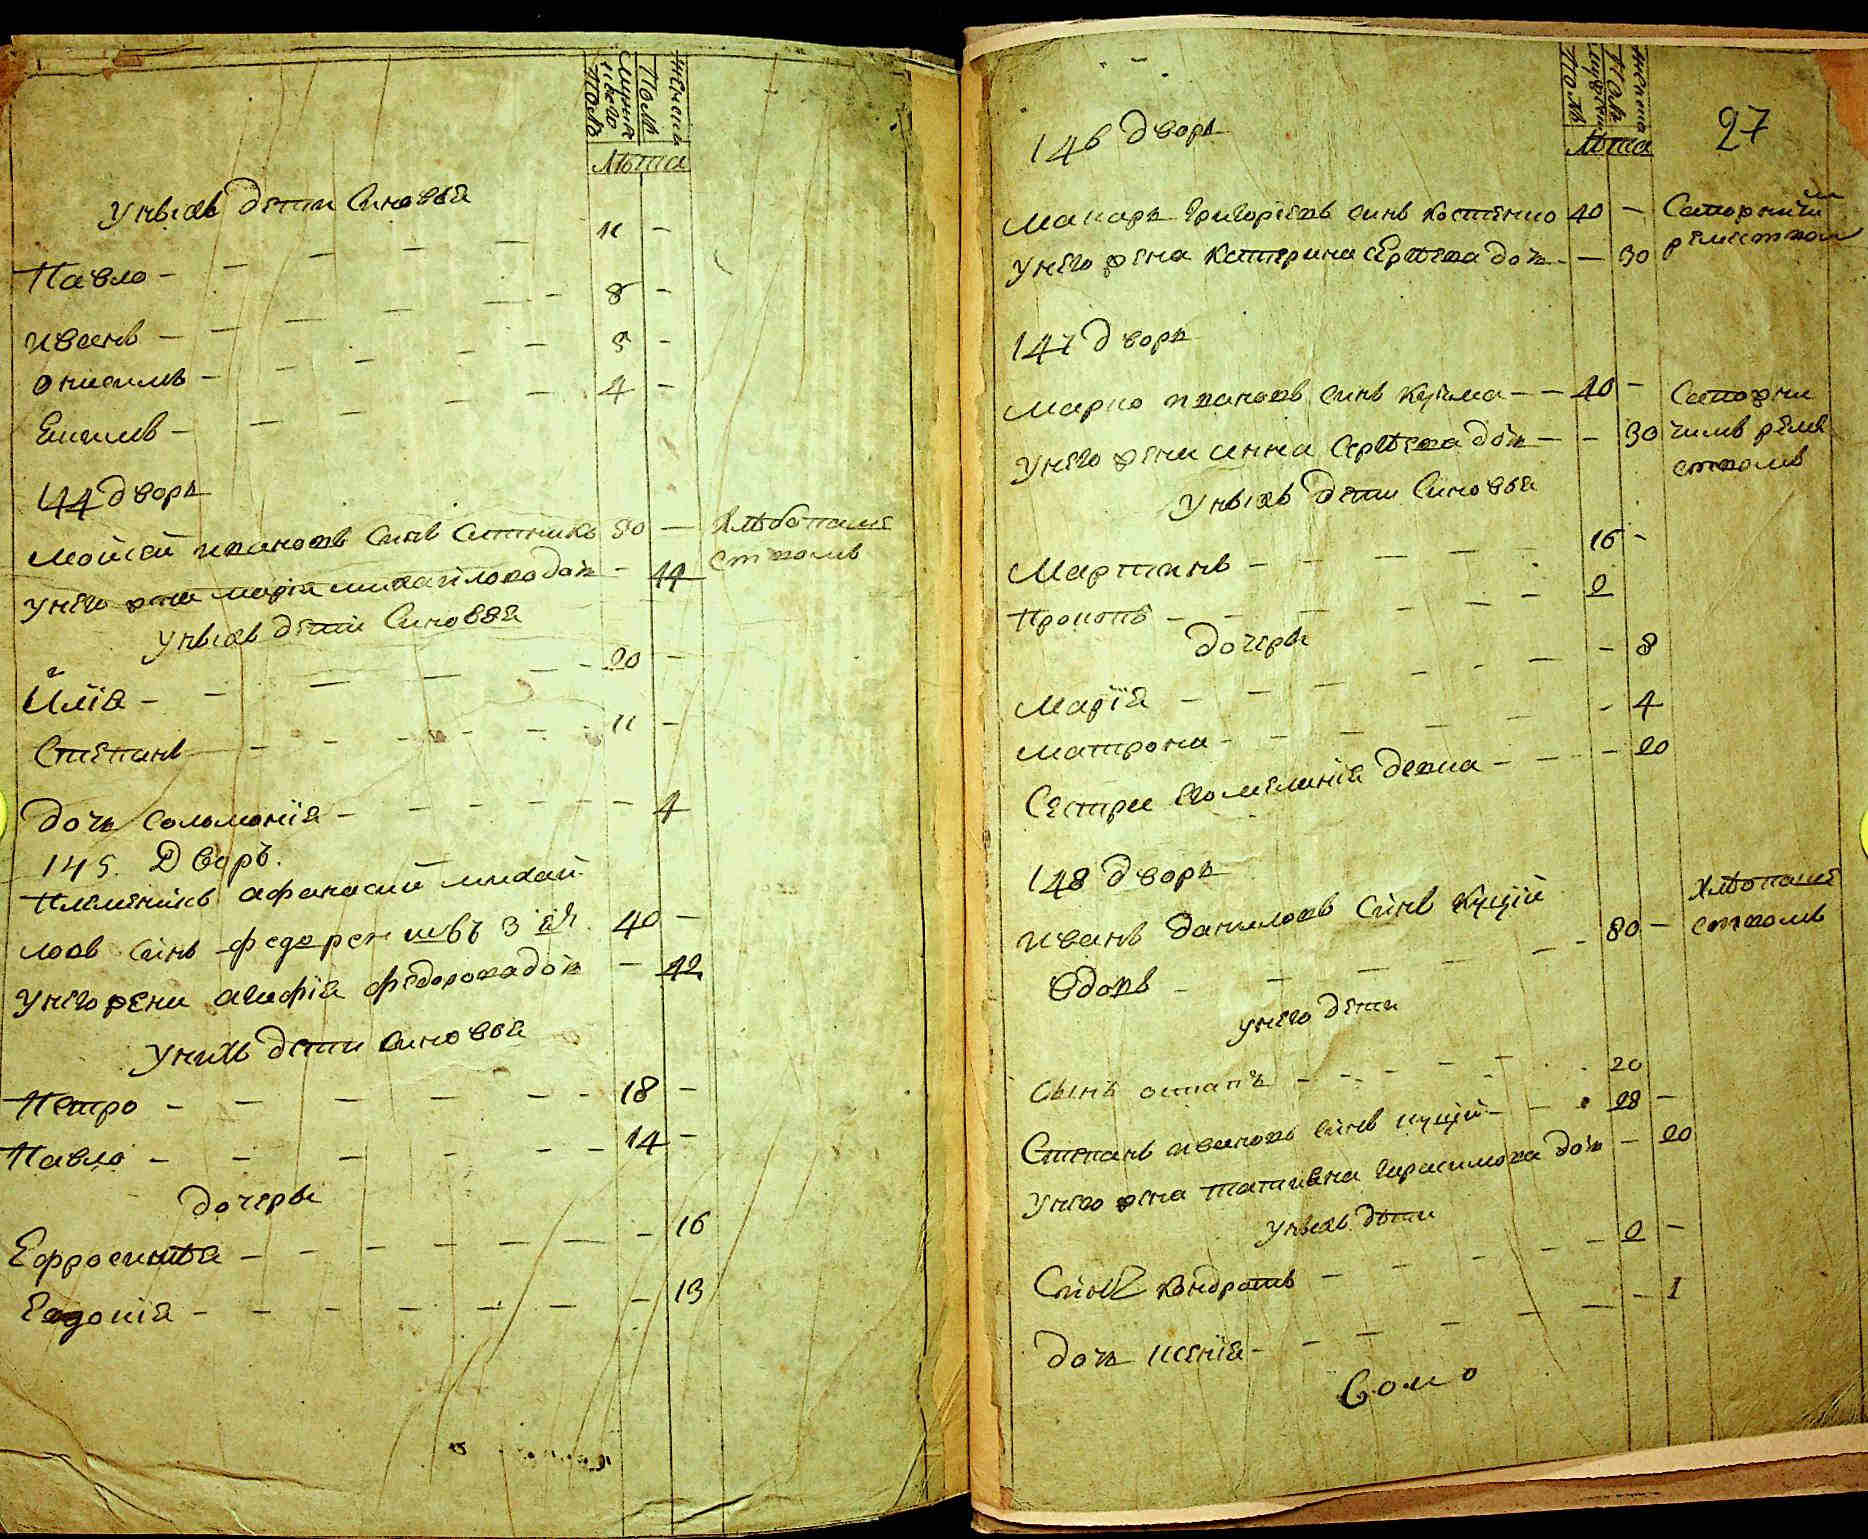 мужеска
полѣ
женска
полѣ
Лѣта
У ныхъ дети Синовья
Павло — 11 —
Иванъ — 8 —
Онисимъ — 5 —
Евгимъ — 4 —
144 дворъ
Мойсей Ивановъ Синъ Ситникъ 50 — Хлѣбопаше
ством
У него жена Марія Михайлова доч — 44
У ныхъ дети Синовья
Илія — 20 —
Степанъ — 11 —
Дочь Соломонія — 4
145. Дворъ.
Племѣникъ Афанасий Михай
ловъ Синъ Федоренковъ 3 ей 40 —
У него жена Агафія Федорова доч — 42
У нихъ дети Синовья
Петро — 18 —
Павло — 14 —
Дочеры
Ефросинія — 16
Евдокія — 13
27
Лѣта
146 дворъ
Макаръ Григоріевъ Синъ Костенко 40 —
У него жена Катерина Сергѣева доч — 30
147 дворъ
Марко Ивановъ Синъ Кузма — 40 —
У него жена Анна Сергѣева доч — 30
У ныхъ дети Синовья
Мартинъ — 16 —
Прокопъ — 2
Дочеры
Марія — 8
Матрона — 4
Сестра его Меланія девка — 20
148 дворъ
Иванъ Даниловъ Синъ Куцій
Вдовъ — 80 — Хлѣбопаше
ствомъ
У него дети
Сынъ Остапъ — 20
Степанъ Ивановъ Синъ Куцій — 28 —
У него жена Татияна Герасимова доч — 20
У ныхъ дѣти
Синъ Кондратъ — 2 —
Дочь Ксенія — 1